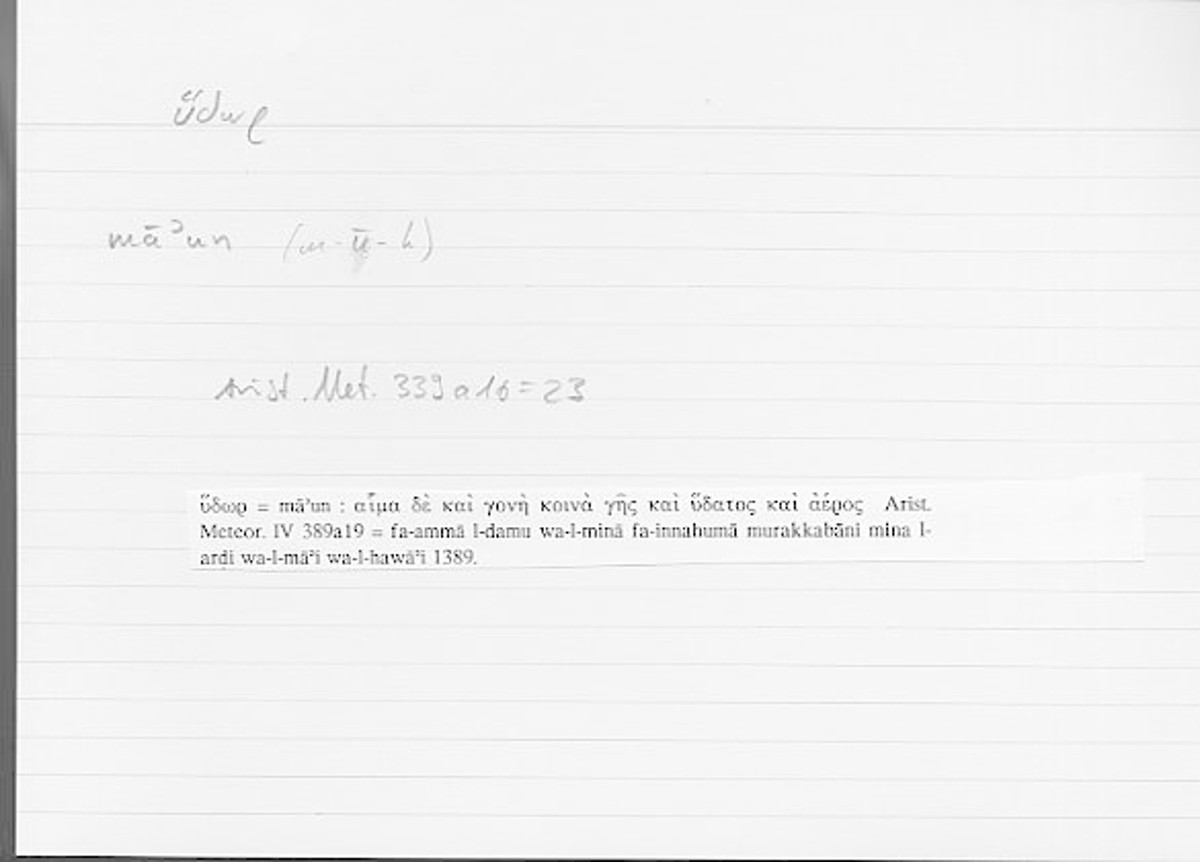 ὕδωρ
māʾun (m-u̯-h)
Arist. Met. 339a16 = 23
ὕδωρ = māʾun : αἷμα δὲ καὶ γονὴ κοινὰ γῆς καὶ ὕδατος καὶ ἀέρος Arist.
Meteor. IV 389a19 = fa-ammā l-damu wa-l-minā fa-innahumā murakkabāni mina l-
arḍi wa-l-māʾi wa-l-hawāʾi 1389.